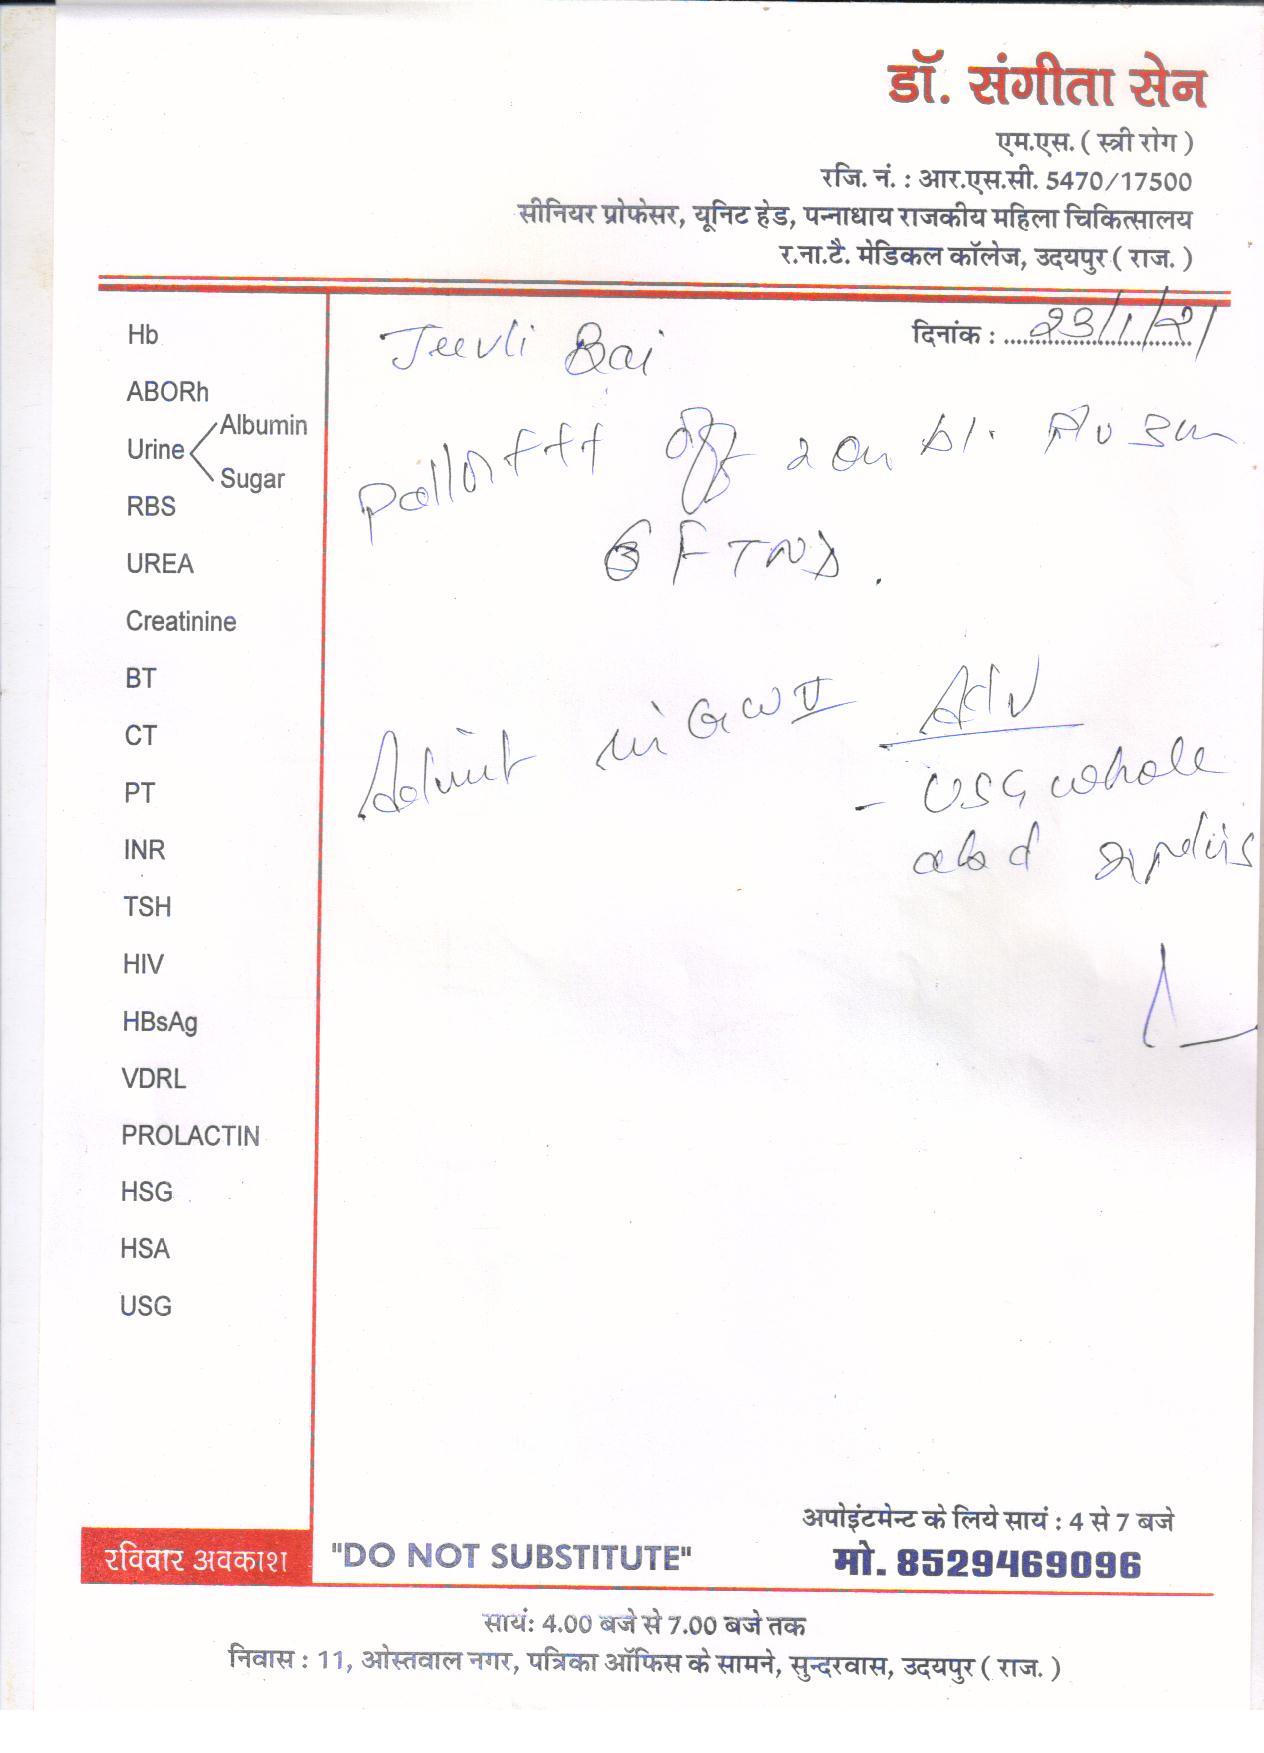 डॉ. संगीता सेन
एम.एस. ( स्त्री रोग )
रजि. नं. : आर.एस.सी. 5470/17500
सीनियर प्रोफेसर, यूनिट हेड, पन्नाधाय राजकीय महिला चिकित्सालय
र.ना.टै. मेडिकल कॉलेज, उदयपुर ( राज. )
दिनांक : 23/1/21
Jeevli Bai
Pallor +++
FTND.
Admit in GW II
Adv
- USG whole
abd pelvis
Hb
ABORh
Urine Albumin
Sugar
RBS
UREA
Creatinine
BT
CT
PT
INR
TSH
HIV
HBsAg
VDRL
PROLACTIN
HSG
HSA
USG
अपोइंटमेन्ट के लिये सायं : 4 से 7 बजे
रविवार अवकाश "DO NOT SUBSTITUTE" मो. 8529469096
सायं: 4.00 बजे से 7.00 बजे तक
निवास : 11, ओस्तवाल नगर, पत्रिका ऑफिस के सामने, सुन्दरवास, उदयपुर ( राज. )